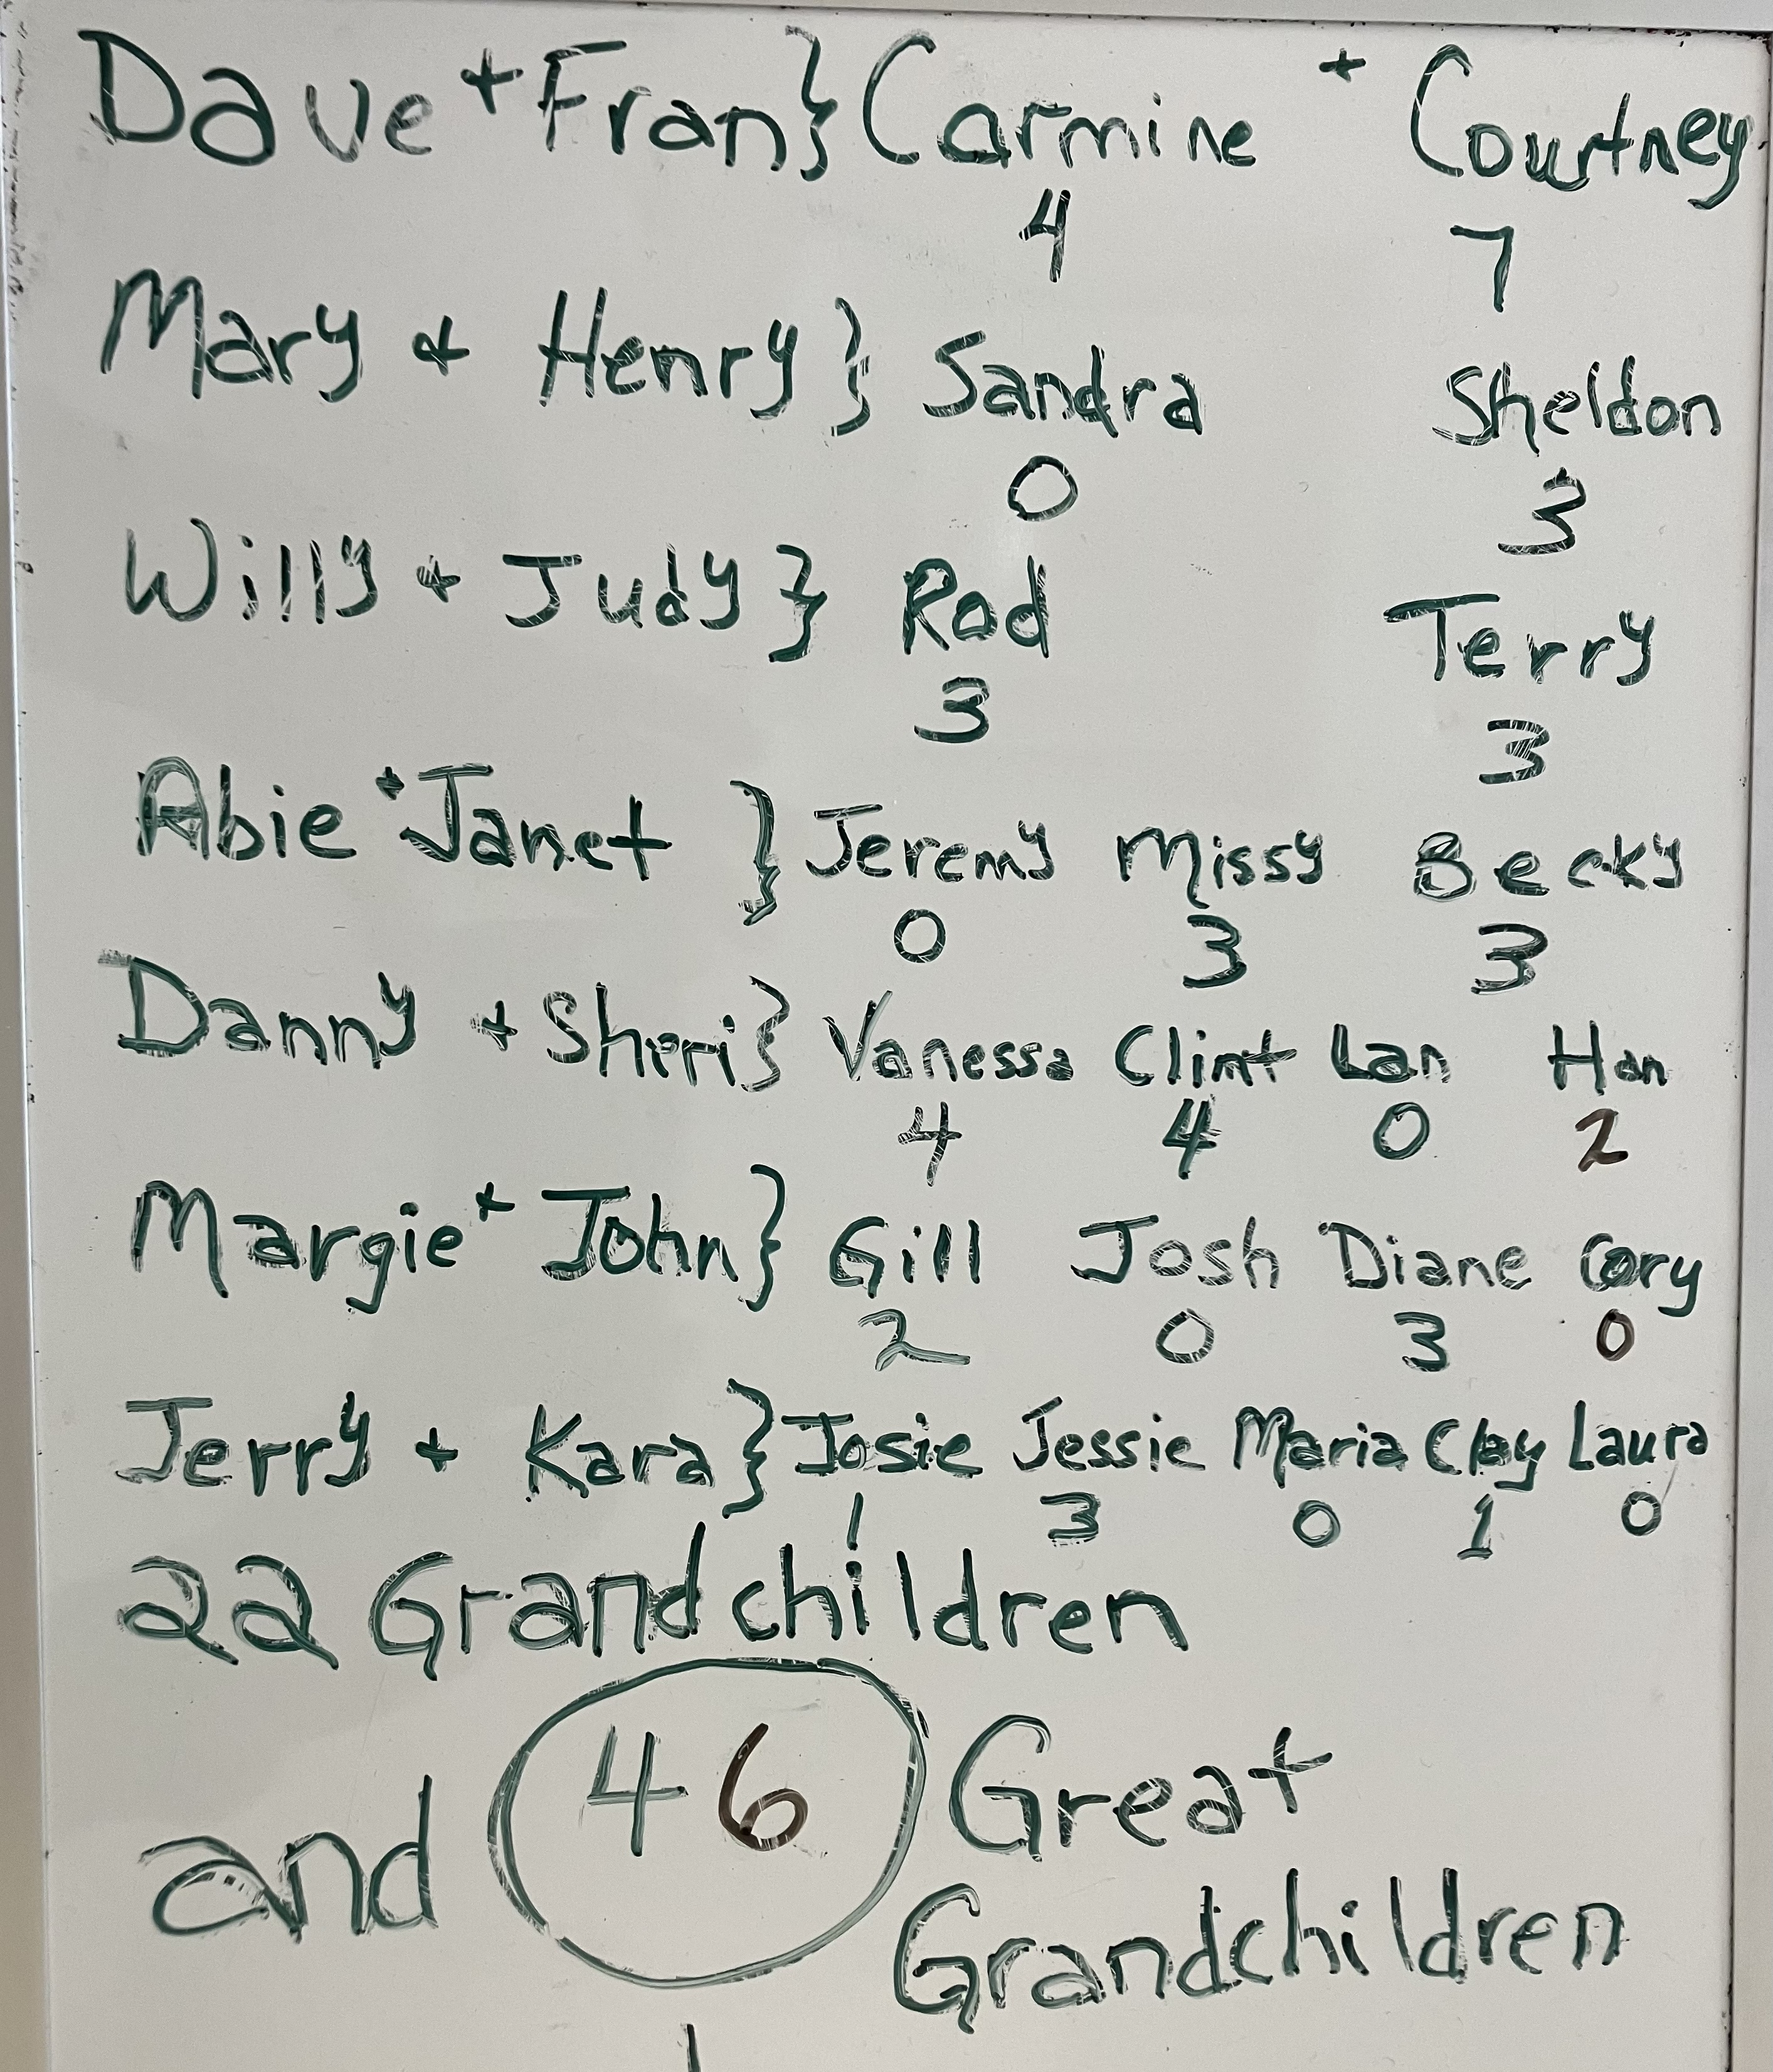 Dave + Fran } Carmine + Courtney
4 7
Mary + Henry } Sandra Sheldon
0 3
Willy + Judy } Rod Terry
3 3
Abie + Janet } Jeremy Missy Becky
0 3 3
Danny + Sheri } Vanessa Clint Lan Han
4 4 0 2
Margie + John } Gill Josh Diane Cory
2 0 3 0
Jerry + Kara } Josie Jessie Maria Clay Laura
1 3 0 1 0
22 Grandchildren
and 46 Great
Grandchildren